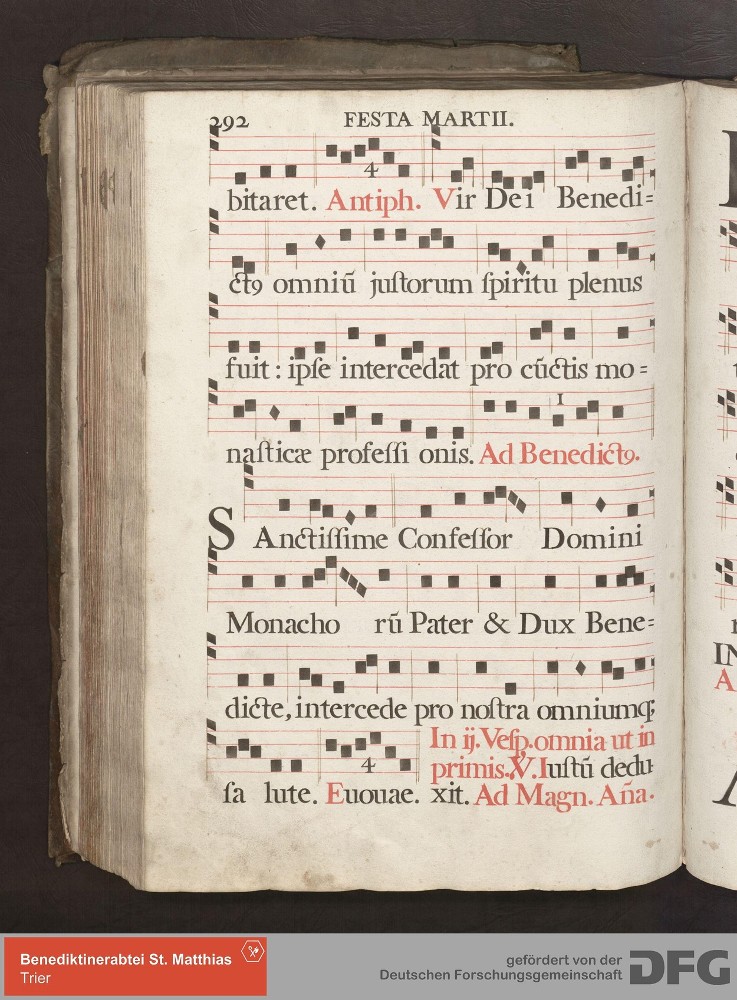 292 FESTA MARTII.
4
bitaret. Antiph. Vir Dei Benedi=
ct9 omniũ juſtorum ſpiritu plenus
fuit : ipſe intercedat pro cũctis mo=
1
naſticæ profeſſi onis. Ad Benedict9.
SAnctiſſime Confeſſor Domini
Monacho rũ Pater & Dux Bene=
dicte, intercede pro noſtra omniumq;
In ij. Veſp. omnia ut in
4
primis. V. Iuſtũ dedu-
ſa lute. Euouae. xit. Ad Magn. Aña.
IN
A
Benediktinerabtei St. Matthias
Trier
gefördert von der
Deutschen Forschungsgemeinschaft
DFG